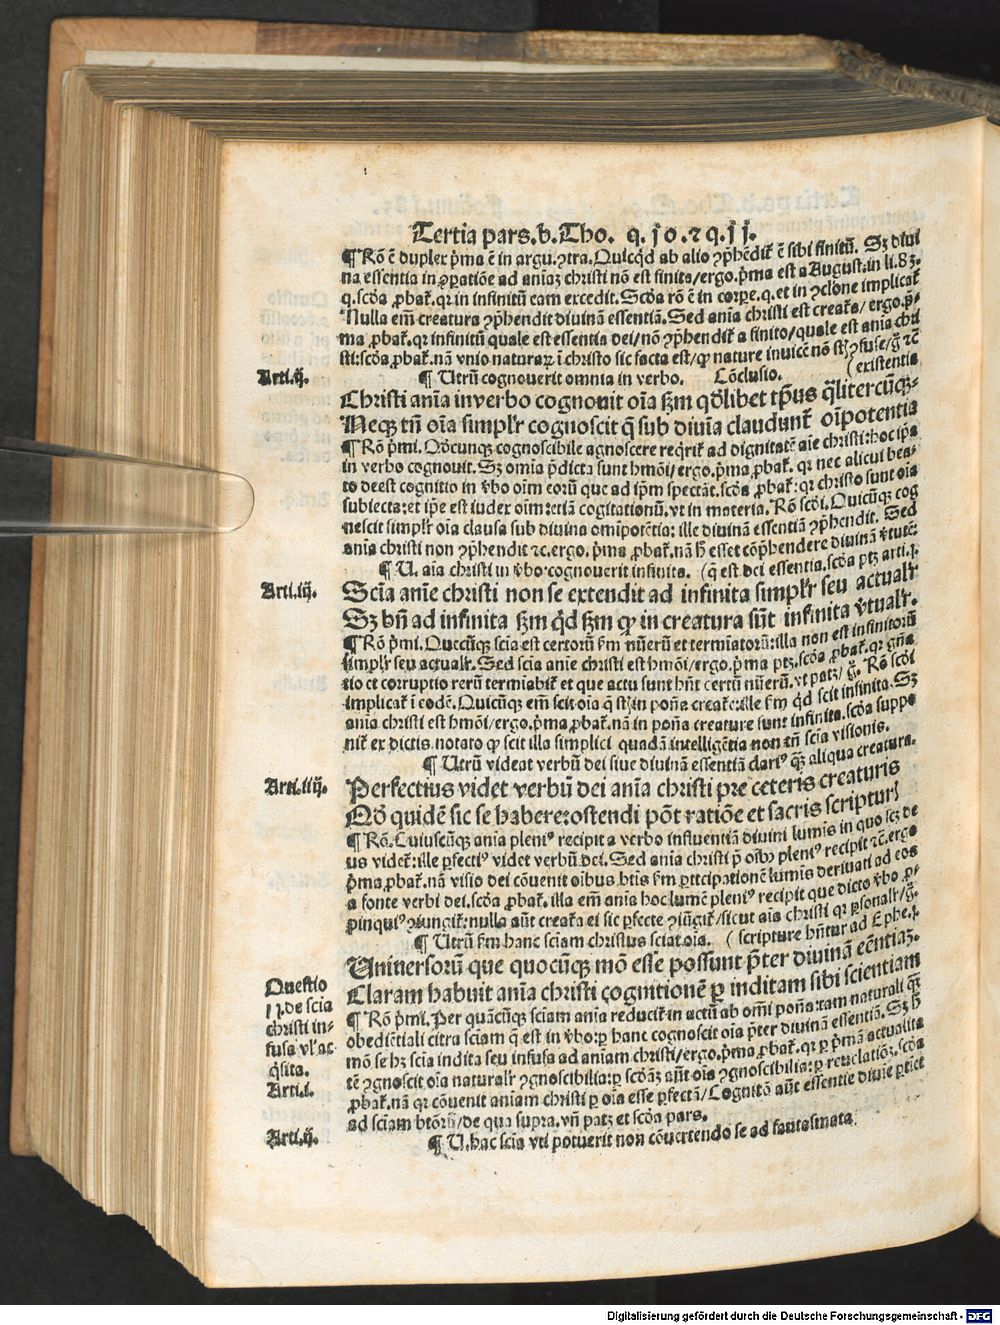 Tertia pars.b.Tho. q.10.⁊ q.11.
¶ Rō ē duplex p̄ma ē in argu.ꝯtra. Quicq̄d ab alio ꝯp̄hēdit̃ ē sibi finitū. Sꝫ divi
na essentia in ꝯparatiōe ad aniaꝫ christi nō est finita/ergo.p̄ma est a August.in li.83.
q.scḋa ꝓbat̃.qꝛ in infinitū eam excedit. Scḋa rō ē in corꝑe.q.et in ꝯclōne implicat̃
Nulla em̄ creatura ꝯp̄hendit divinā essentiā. Sed anīa christi est creat̃a/ergo.p̄
ma ꝓbat̃.qꝛ infinitū quale est essentia dei/nō ꝯp̄hendit̃ a finito/quale est anīa chri
sti:scḋa ꝓbat̃.nā vnio naturaꝝ ī christo sic facta est/ꝙ nature invicē nō sūt ꝯfuse/g̊ ⁊c̄
Arti.ij. ¶ Utrū cognouerit omnia in verbo. Cōclusio. (existentia
Christi anīa inverbo cognouit oīa ẜm qḋlibet tp̄us q̄litercūqꝫ
Necqꝫ tn̄ oīa simpl'r cognoscit q̄ sub diuīa claudunt̃ oīpotentia
¶ Rō p̄mi. Oēcunqꝫ cognoscibile agnoscere reqrit̃ ad dignitatē aīe christi:hoc ip̄a
in verbo cognouit. Sꝫ omīa p̄dicta sunt hm̄oi/ergo.p̄ma ꝓbat̃. qꝛ nec alicui bea
to deest cognitio in v̄bo oīm eorū que ad ip̄m spectāt.scḋa ꝓbat̃:qꝛ christo sunt oīa
subiecta:et ip̄e est iudex oīm:etiā cogitationū.vt in materia. Rō scḋi. Quicūqꝫ cog
nescit simpl'r oīa clausa sub divina omīpotētia: ille divinā essentiā ꝯp̄hendit. Sed
anīa christi non ꝯp̄hendit ⁊c.ergo. p̄ma ꝓbat̃.nā h̄ esset cōp̄hendere divinā v̄tutē:
¶ U. aīa christi in v̄bo cognouerit infinita. (q̄ est dei essentia.scḋa ptꝫ arti.j.
Arti.iij. Scia anīe christi non se extendit ad infinita simpl'r seu actual'r
Sꝫ bn̄ ad infinita ẜm q̄d ẜm ꝙ in creatura sūt infinita v̄tual'r.
¶ Rō p̄mi. Quecūqꝫ scia est certorū ẜm nūerū et termīatorū:illa non est infinitorū
simpl'r seu actual'r. Sed scia anīe christi est hm̄oi/ergo.p̄ma ptꝫ.scḋa ꝓbat̃.qꝛ gn̄a
tio et corruptio rerū termīabit̃ et que actu sunt hn̄t certū nūerū.vt patꝫ/g̊. Rō scḋi
implicat̃ ī eodē. Quicūqꝫ em̄ scit oīa q̄ sūt in potn̄a creat̃e:ille ẜm qd̄ scit infinita. Sꝫ
anīa christi est hm̄oi/ergo.p̄ma ꝓbat̃.nā in potn̄a creature sunt infinita.scḋa suppo
nit̃ ex dictis.notato ꝙ scit illa simplici quadā intelligētia non tn̄ scīa visionis.
¶ Utrū videat verbū dei siue divinā essentiā clari⁹ q̄ꝫ aliqua creatura.
Arti.iiij. Perfectius videt verbū dei anīa christi pre ceteris creaturis
Qḋ quidē sic se habere:ostendi pōt ratiōe et sacris scripturꝭ
¶ Rō. Cuiuscūqꝫ anīa pleni⁹ recipit a verbo influentiā divini lumīs in quo scꝫ de
us videt̃:ille ꝑfecti⁹ videt verbū dei. Sed anīa christi p̄ oībꝫ pleni⁹ recipit ⁊c̄.ergo
p̄ma ꝓbat̃.nā visio dei cōuenit oībus btīs ẜm ꝑticipationē lumīs deriuati ad eos
a fonte verbi dei.scḋa ꝓbat̃. illa em̄ anīa hoc lumē pleni⁹ recipit que dicto v̄bo ꝓ
pinqui⁹ ꝯiungit̃:nulla aūt creat̃a ei sic ꝑfecte ꝯiūgit̃/sicut aīa christi qꝛ ꝑsonal'r/g̊.
¶ Utrū ẜm hanc sciam christus sciat.oīa. (scripture hn̄tur ad Ephe.j.
Uniuersorū que quocūqꝫ mō esse possunt p̄ter diuinā eēntiaꝫ.
Questio
11.de scīa
christi in-
fusa vl' ac
q̄sita.
Arti.i.
Claram habuit anīa christi cognitionē ꝑ inditam sibi scientiam
¶ Rō p̄mi. Per quācūqꝫ sciam anīa reducit̃ in actū ab om̄i potn̄a:tam naturali q̄ꝫ
obediētiali citra sciam q̄ est in v̄bo:ꝑ hanc cognoscit oīa p̄ter diuinā essentiā. Sꝫ h̄
mō se hꝫ scia indita seu infusa ad aniam christi/ergo.p̄ma ꝓbat̃. qꝛ ꝑ p̄mā actualita
tē ꝯgnoscit oīa natural'r ꝯgnoscibilia:ꝑ scḋāꝫ aūt oīa ꝯgnoscibilia:ꝑ reuelatiōꝫ.scḋa
ꝓbat̃.nā qꝛ cōuenit aniam christi ꝑ oīa esse ꝑfectā/Cognitō aūt essentie diuīe ꝑtinet
ad sciam btōrū/de qua supra.vn̄ patꝫ et scḋa pars.
Arti.ij. ¶ U.hac scīa vti potuerit non cōuertendo se ad fantasmata
Digitalisierung gefördert durch die Deutsche Forschungsgemeinschaft - DFG